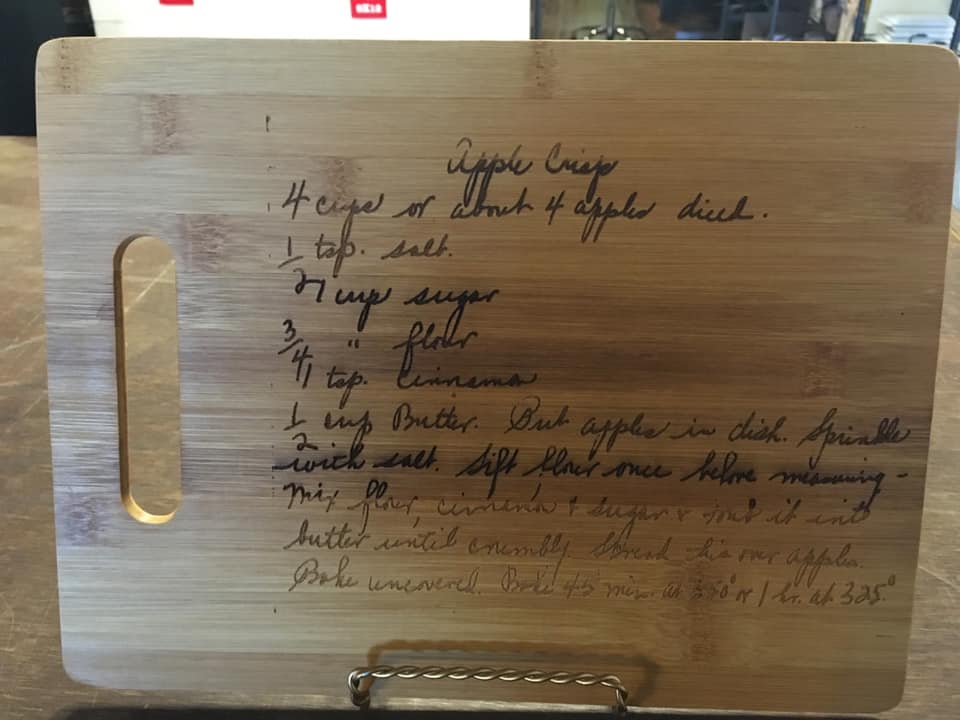 Apple Crisp
4 cups or about 4 apples diced.
1/2 tsp. salt.
1 cup sugar
3/4 " flour
1 tsp. cinnamon
1/2 cup Butter. Put apples in dish. Sprinkle
with salt. Sift flour once before measuring -
Mix flour, cinnamon & sugar & it into
butter until crumbly. Spread this over apples.
Bake uncovered. Bake 45 min. at 350° or 1 hr. at 325°